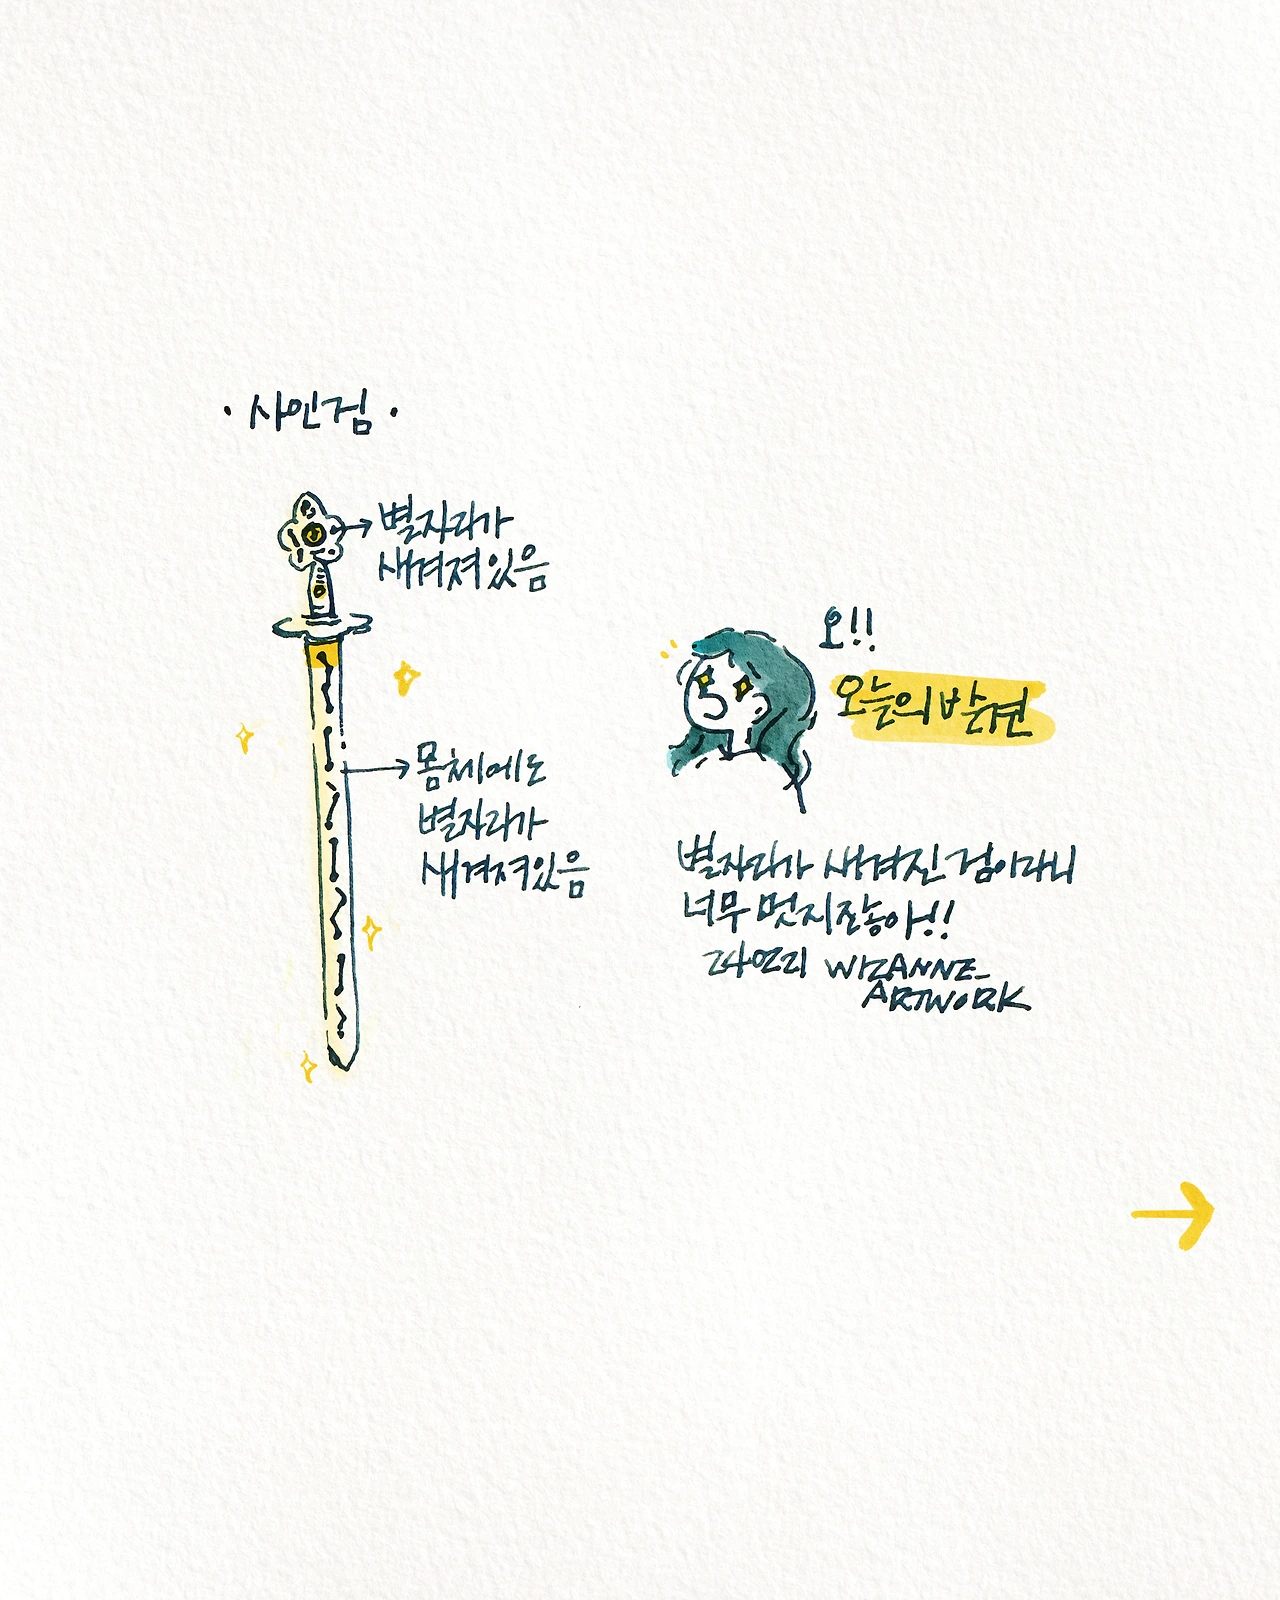 · 사인검 ·
별자리가
새겨져있음
몸체에도
별자리가
새겨져있음
오!!
오늘의 발견
별자리가 새겨진 검이라니
너무 멋지잖아!!
WIZANNE_
ARTWORK